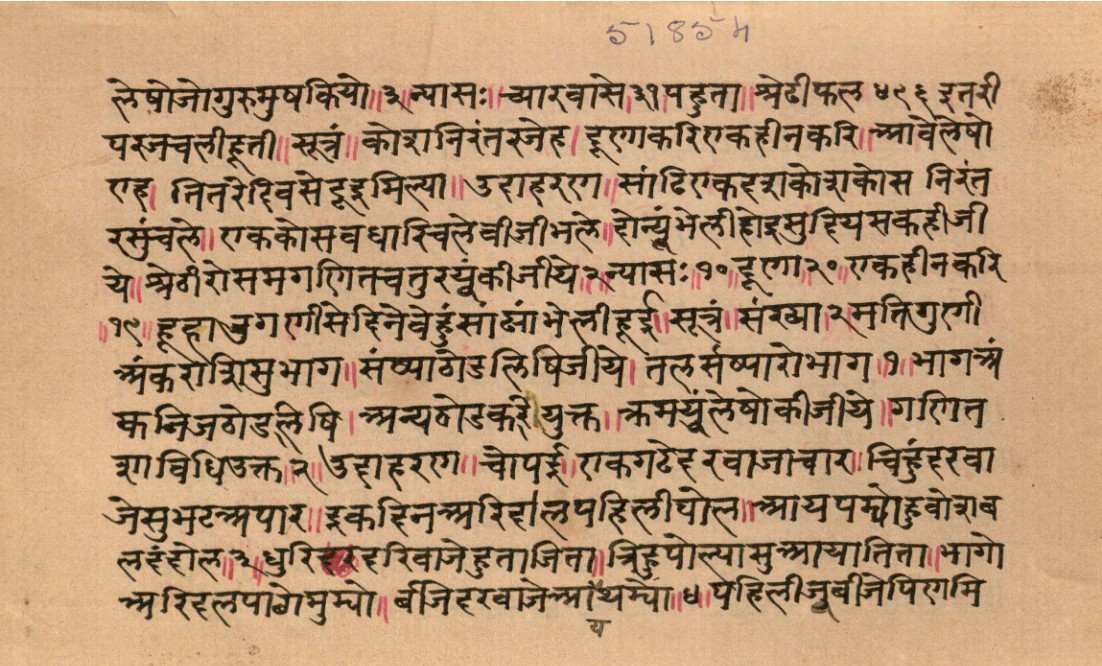 51854
लेषोजोगुरुमुषकियो॥३॥न्यासः॥च्यारवासे३१पहुता॥श्रेढीफल४९६इतरी
परजचलीहूती॥सूत्रं॥कोशनिरंतरजेह।दूणकरिएकहीनकरि॥आवेलेषो
एह।तितरेदिवसेदूइमिल्या॥उदाहरण॥सांढिएकदशकोशकोस निरंत
रसुंचले॥एककोसवधारिचलेबीजीभले॥दोन्यूंभेलीहोइसुदियसकहीजी
ये॥श्रेढीरोसमगणितचतुरयुंकीजीये२न्यासः॥१०॥दूणा२०॥एकहीनकरि
॥१९॥हूहाउगणीसेदिनेवेहुंसांढ्यांभेलीहूई॥सूत्रं॥संख्या२मतिगुणी
अंकराशिसुभाग॥संष्याठोडलिषिजीये।तलसंष्यारोभाग१॥भागअं
कनिजठोडलेषि।अन्यठोडकरेयुक्त॥क्रमयुंलेषोकीजीये॥गणित
शविधिउक्त२॥उदाहरण॥चोपई॥एकगढेदरवाजाचार॥चिहुंदरवा
जेसुभटअपार॥इकदिनअरिदलपहिलीपोल॥आयपम्योहुवोशब
लदंदोल॥३॥धुरिदरवाजेहुताजिता॥त्रिहुपोल्यासुआयातिता॥भागो
अरिदलपाछोमुम्यो॥बीजेदरवाजेआयम्यो॥४॥पहिलीजूबीजेपिणमि
य